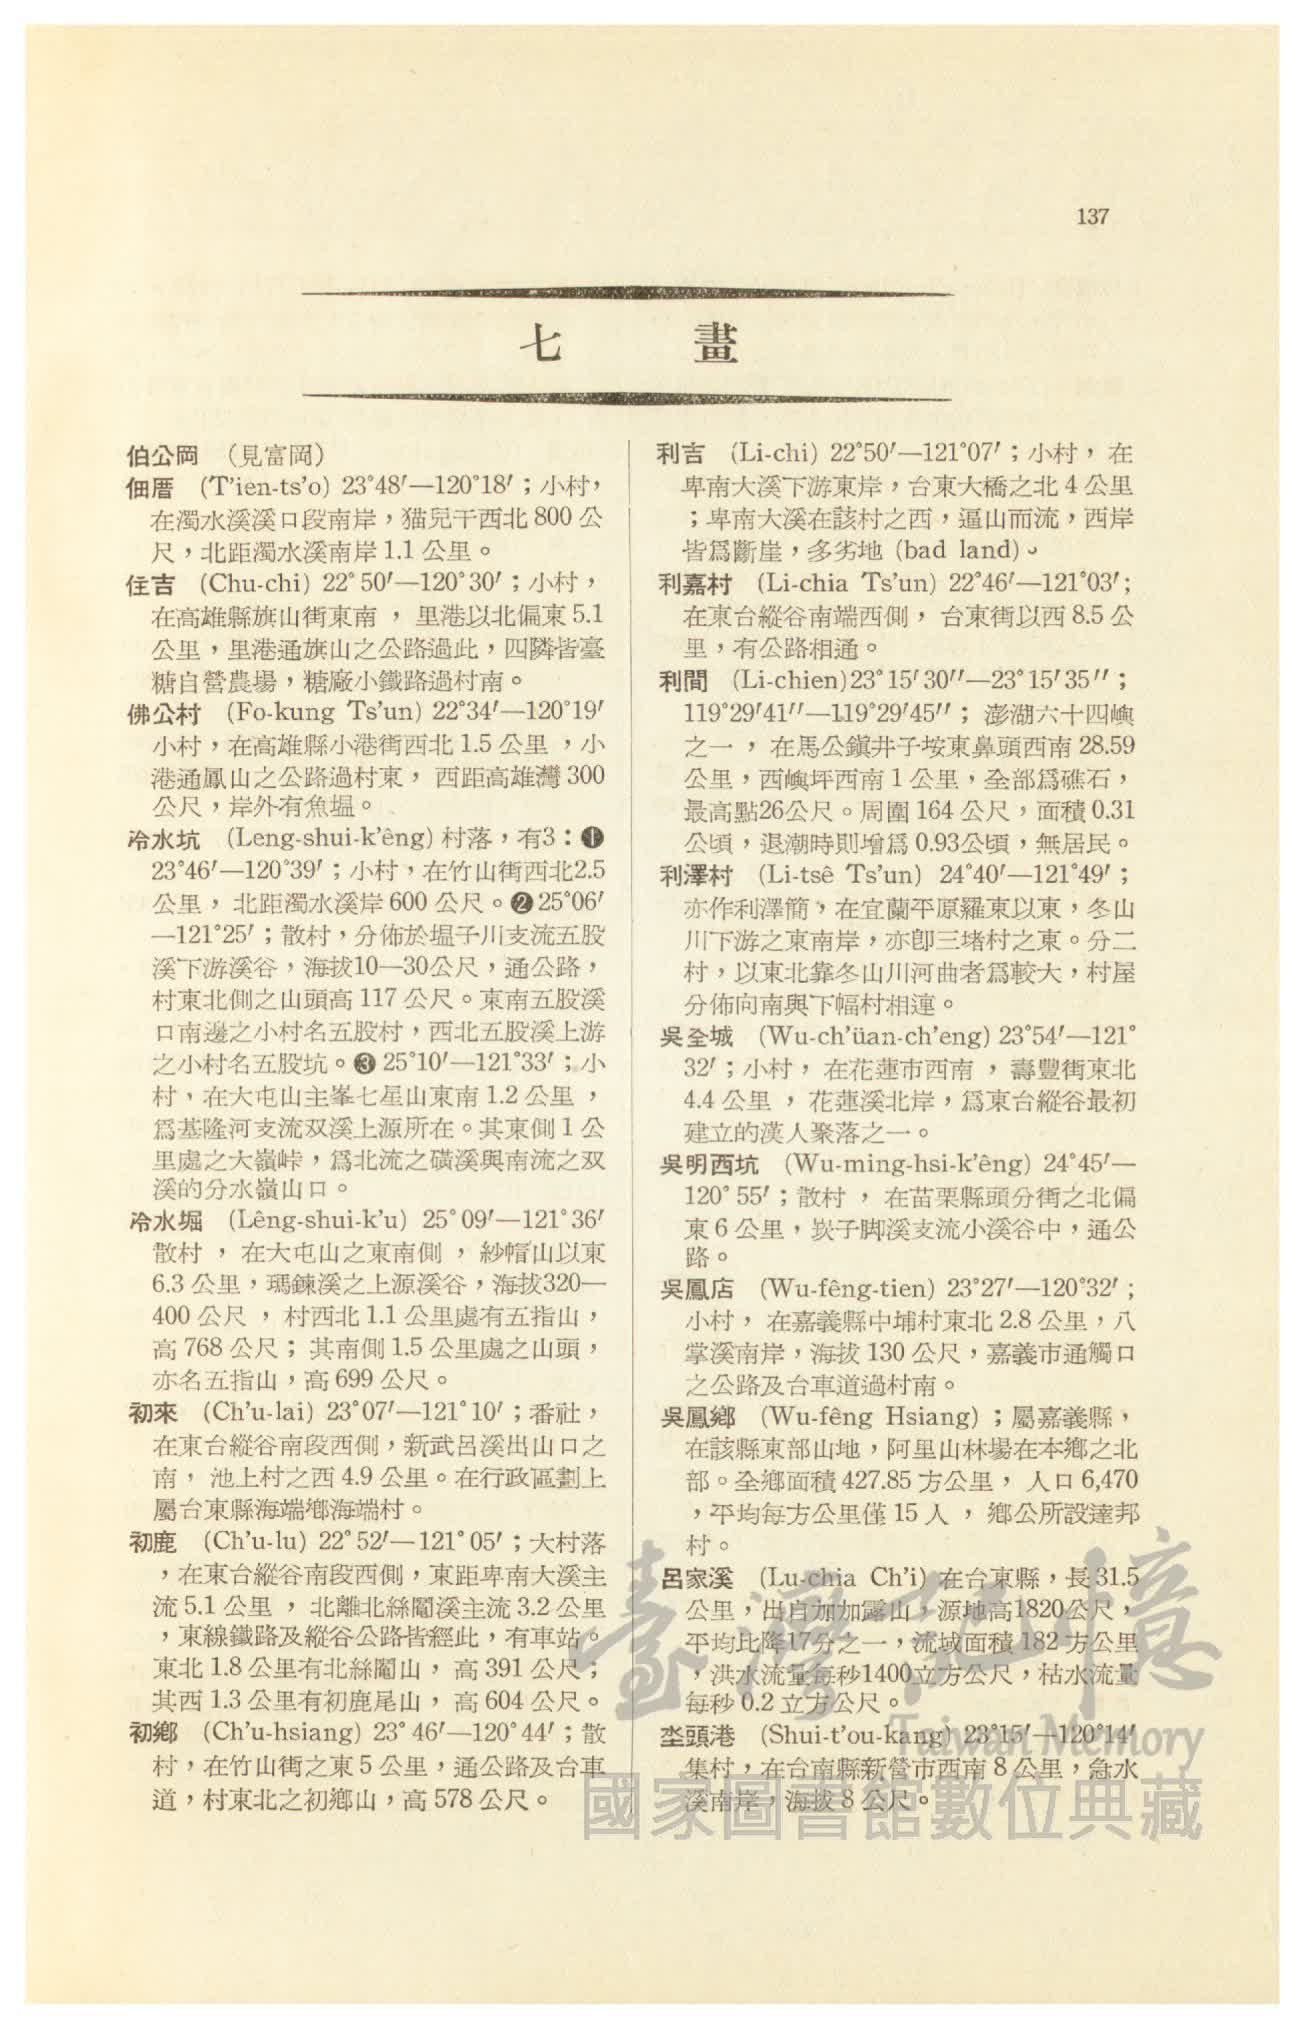 137
七畫
伯公岡 (見富岡)
佃厝 (T'ien-ts'o) 23°48′—120°18′；小村，
在濁水溪溪口段南岸，猫兒干西北800公
尺，北距濁水溪南岸1.1公里。
住吉 (Chu-chi) 22°50′—120°30′；小村，
在高雄縣旗山街東南，里港以北偏東5.1
公里，里港通旗山之公路過此，四隣皆臺
糖自營農場，糖廠小鐵路過村南。
佛公村 (Fo-kung Ts'un) 22°34′—120°19′
小村，在高雄縣小港街西北1.5公里，小
港通鳳山之公路過村東，西距高雄灣300
公尺，岸外有魚塭。
冷水坑 (Leng-shui-k'êng) 村落，有3：❶
23°46′—120°39′；小村，在竹山街西北2.5
公里，北距濁水溪岸600公尺。❷25°06′
—121°25′；散村，分佈於塭子川支流五股
溪下游溪谷，海拔10—30公尺，通公路，
村東北側之山頭高117公尺。東南五股溪
口南邊之小村名五股村，西北五股溪上游
之小村名五股坑。❸25°10′—121°33′；小
村，在大屯山主峯七星山東南1.2公里，
爲基隆河支流双溪上源所在。其東側1公
里處之大嶺峠，爲北流之磺溪與南流之双
溪的分水嶺山口。
冷水堀 (Lêng-shui-k'u) 25°09′—121°36′
散村，在大屯山之東南側，紗帽山以東
6.3公里，瑪鍊溪之上源溪谷，海拔320—
400公尺，村西北1.1公里處有五指山，
高768公尺；其南側1.5公里處之山頭，
亦名五指山，高699公尺。
初來 (Ch'u-lai) 23°07′—121°10′；番社，
在東台縱谷南段西側，新武呂溪出山口之
南，池上村之西4.9公里。在行政區劃上
屬台東縣海端鄉海端村。
初鹿 (Ch'u-lu) 22°52′—121°05′；大村落
，在東台縱谷南段西側，東距卑南大溪主
流5.1公里，北離北絲鬮溪主流3.2公里
，東線鐵路及縱谷公路皆經此，有車站。
東北1.8公里有北絲鬮山，高391公尺；
其西1.3公里有初鹿尾山，高604公尺。
初鄉 (Ch'u-hsiang) 23°46′—120°44′；散
村，在竹山街之東5公里，通公路及台車
道，村東北之初鄉山，高578公尺。
利吉 (Li-chi) 22°50′—121°07′；小村，在
卑南大溪下游東岸，台東大橋之北4公里
；卑南大溪在該村之西，逼山而流，西岸
皆爲斷崖，多劣地 (bad land)。
利嘉村 (Li-chia Ts'un) 22°46′—121°03′;
在東台縱谷南端西側，台東街以西8.5公
里，有公路相通。
利間 (Li-chien)23°15′30″—23°15′35″；
119°29′41″—119°29′45″；澎湖六十四嶼
之一，在馬公鎮井子垵東鼻頭西南28.59
公里，西嶼坪西南1公里，全部爲礁石，
最高點26公尺。周圍164公尺，面積0.31
公頃，退潮時則增爲0.93公頃，無居民。
利澤村 (Li-tsê Ts'un) 24°40′—121°49′；
亦作利澤簡，在宜蘭平原羅東以東，冬山
川下游之東南岸，亦卽三堵村之東。分二
村，以東北靠冬山川河曲者爲較大，村屋
分佈向南與下幅村相連。
吳全城 (Wu-ch'üan-ch'eng) 23°54′—121°
32′；小村，在花蓮市西南，壽豐街東北
4.4公里，花蓮溪北岸，爲東台縱谷最初
建立的漢人聚落之一。
吳明西坑 (Wu-ming-hsi-k'êng) 24°45′—
120°55′；散村，在苗栗縣頭分街之北偏
東6公里，崁子脚溪支流小溪谷中，通公
路。
吳鳳店 (Wu-fêng-tien) 23°27′—120°32′;
小村，在嘉義縣中埔村東北2.8公里，八
掌溪南岸，海拔130公尺，嘉義市通觸口
之公路及台車道過村南。
吳鳳鄉 (Wu-fêng Hsiang)；屬嘉義縣，
在該縣東部山地，阿里山林場在本鄉之北
部。全鄉面積427.85方公里，人口6,470
，平均每方公里僅15人，鄉公所設達邦
村。
呂家溪 (Lu-chia Ch'i) 在台東縣，長31.5
公里，出自加加露山，源地高1820公尺，
平均比降17分之一，流域面積182方公里
，洪水流量每秒1400立方公尺，枯水流量
每秒0.2立方公尺。
坔頭港 (Shui-t'ou-kang) 23°15′—120°14′
集村，在台南縣新營市西南8公里，急水
溪南岸，海拔8公尺。
臺灣記憶
Taiwan Memory
國家圖書館數位典藏